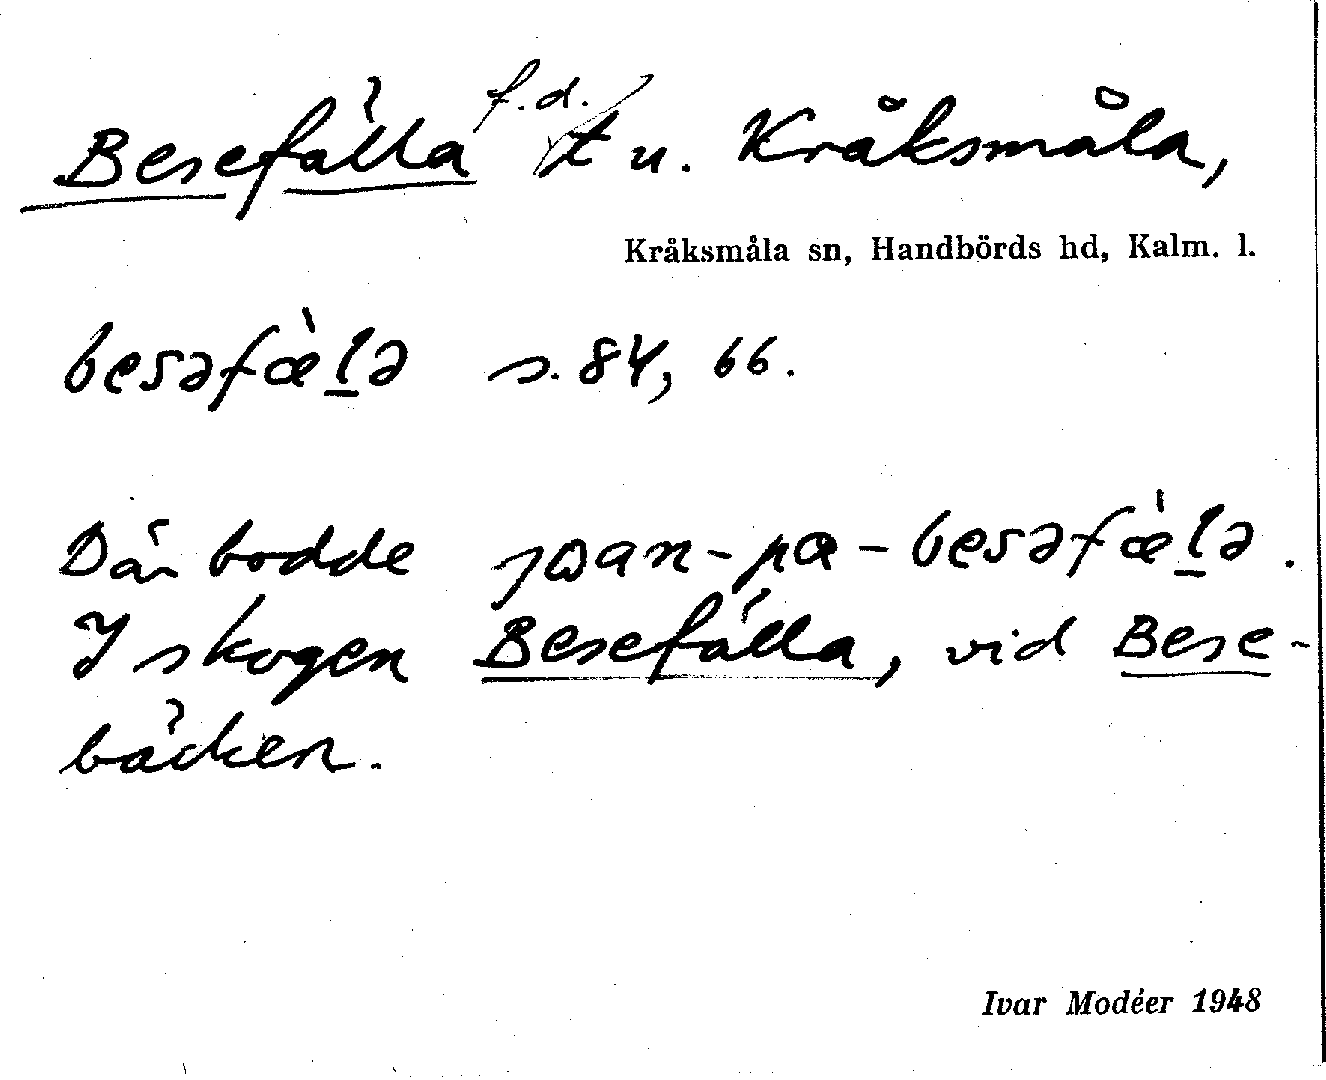 Besefälla f.d. t u. Kråksmåla,
Kråksmåla sn, Handbörds hd, Kalm. l.
besəfæ̀l̲ə s. 84, 66.
Där bodde -pæ-besəfæ̀l̲ə.
I skogen Besefälla, vid Bese-
bäcken.
Ivar Modéer 1948